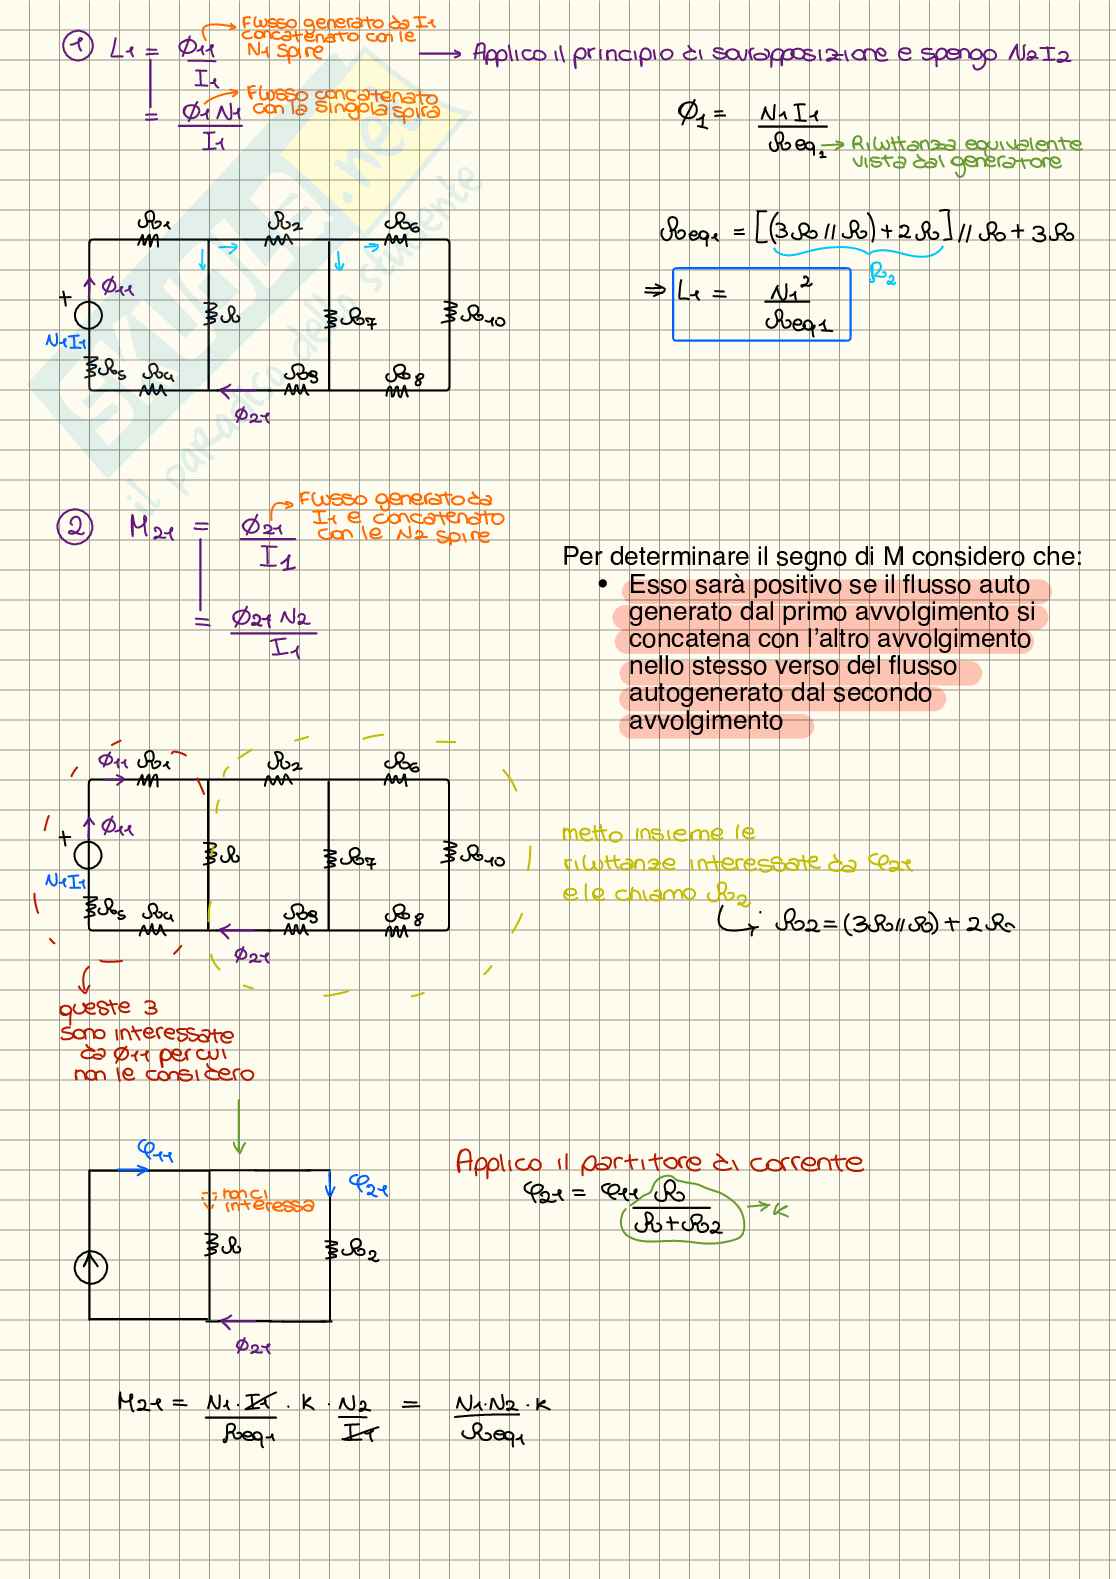 ① L₁ = Φ₁₁ / I₁
Flusso generato da I₁
concatenato con le
N₁ spire
→ Applico il principio di sovrapposizione e spengo N₂I₂
= Φ₁ N₁ / I₁
Flusso concatenato
con la singola spira
Φ₁ = N₁ I₁ / ℛeq₁
→ Riluttanza equivalente
vista dal generatore
ℛeq₁ = [(3ℛ // ℛ) + 2ℛ] // ℛ + 3ℛ
ℛ₂
⇒ L₁ = N₁² / ℛeq₁
ℛ₁ ℛ₂ ℛ₆
Φ₁₁
+
N₁I₁
ℛ ℛ₇ ℛ₁₀
ℛ₅ ℛ₄ ℛ₉ ℛ₈
Φ₂₁
SKUOLA.net
il paradiso dello studente
② M₂₁ = Φ₂₁ / I₁
Flusso generato da
I₁ e concatenato
con le N₂ spire
= Φ₂₁ N₂ / I₁
Per determinare il segno di M considero che:
• Esso sarà positivo se il flusso auto
generato dal primo avvolgimento si
concatena con l'altro avvolgimento
nello stesso verso del flusso
autogenerato dal secondo
avvolgimento
Φ₁₁ ℛ₁ ℛ₂ ℛ₆
Φ₁₁
+
N₁I₁
ℛ ℛ₇ ℛ₁₀
ℛ₅ ℛ₄ ℛ₉ ℛ₈
Φ₂₁
metto insieme le
riluttanze interessate da φ₂₁
e le chiamo ℛ₂
ℛ₂ = (3ℛ // ℛ) + 2ℛ
queste 3
sono interessate
da Φ₁₁ per cui
non le considero
φ₁₁
non ci
interessa
φ₂₁
ℛ ℛ₂
Φ₂₁
Applico il partitore di corrente
φ₂₁ = φ₁₁ ℛ / (ℛ + ℛ₂) → K
M₂₁ = N₁ · I₁ / ℛeq₁ · K · N₂ / I₁ = N₁ · N₂ / ℛeq₁ · K